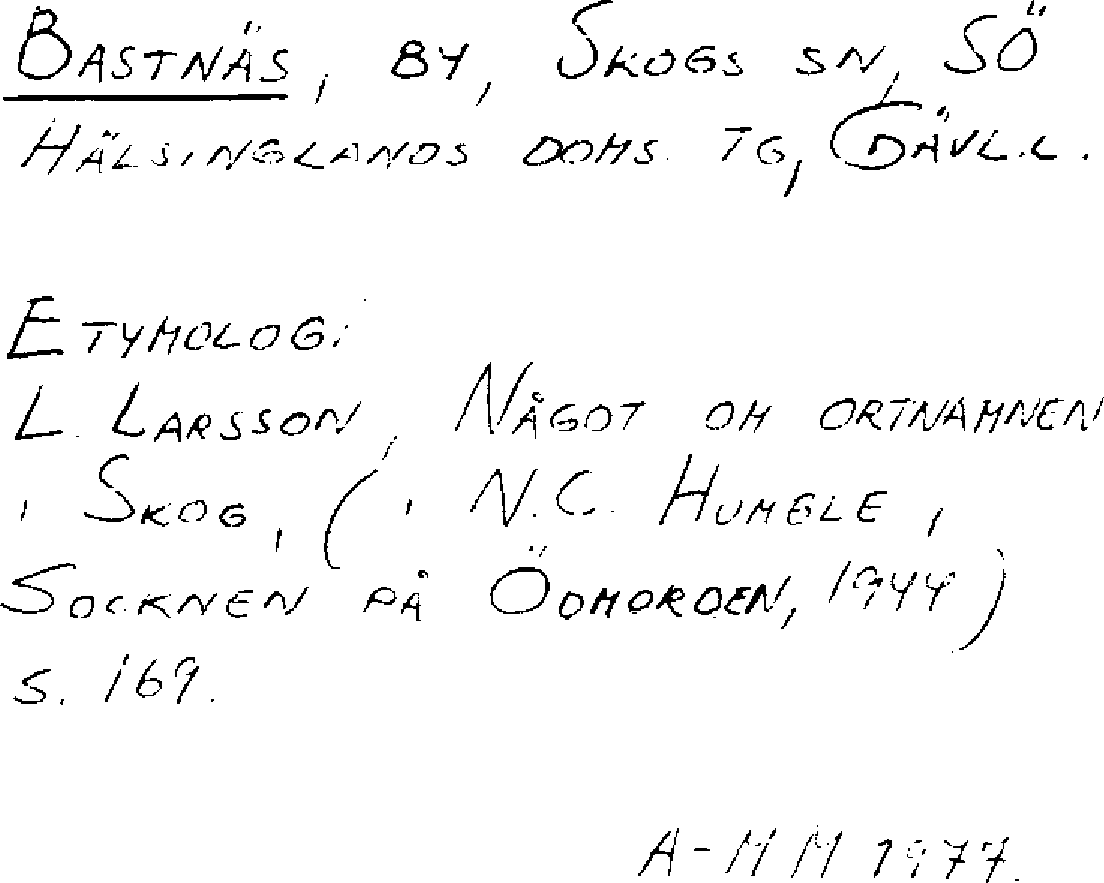 BASTNÄS, BY, SKOGS SN, SÖ
HÄLSINGLANDS DOMS. TG, GÄVL.L.
ETYMOLOGI
L. LARSSON, NÅGOT OM ORTNAMNEN
I SKOG, (I N.C. HUMBLE,
SOCKNEN PÅ ÖDMORDEN, 1944)
S. 169.
A-M M 1977.